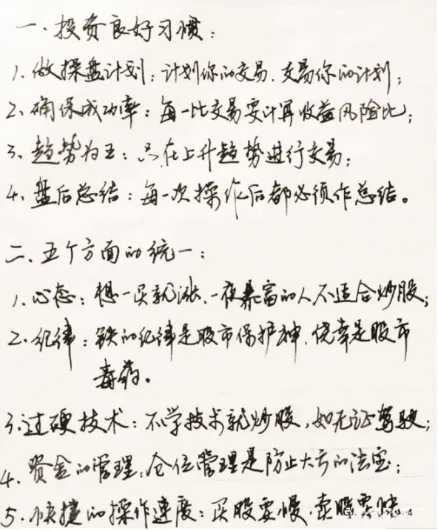 一、投资良好习惯：
1、做操盘计划：计划你的交易、交易你的计划；
2、确保成功率：每一比交易要计算收益风险比；
3、趋势为王：只在上升趋势进行交易；
4、盘后总结：每一次操作后都必须作总结。
二、五个方面的统一：
1、心态：想一买就涨、一夜暴富的人不适合炒股；
2、纪律：铁的纪律是股市保护神，侥幸是股市
毒药。
3、过硬技术：不学技术就炒股，如无证驾驶；
4、资金的管理：仓位管理是防止大亏的法宝；
5、快捷的操作速度：买股要慢、卖股要快